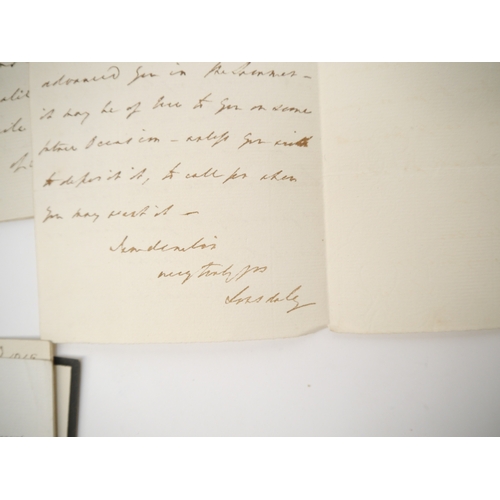 advanced you in the Summer –
it may be of Use to you on some
future Occasion – unless you wish
to deposit it, to call for when
you may want it –
I am dear Sir
very truly yrs
Lonsdale